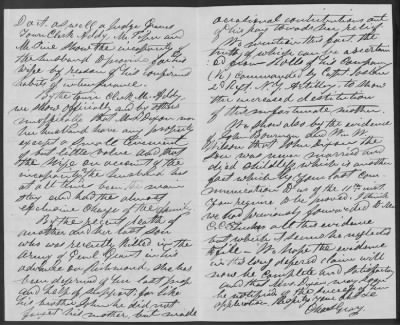 Da't. as well as Judge James
Town Clerk Hildy, Mr. Toper and
Mr. True show the incapacity of
the husband to provide for his
wife by reason of his confirmed
habits of intemperance.
By the Town Clerk Mr. Hildy
we show officially and by others
unofficially that Mrs Dixon nor
her husband have any property
except a small tenement
of but little value and that
the Wife on account of the
incapacity of the husband has
at all times been the main
stay and had the almost
exclusive charge of the family.
By the recent death of
another and her last son
who was recently killed in the
Army of Genl Grant in his
advance on Richmond, she has
been deprived of her last prop
and help of support for like
his brother John he did not
forget his mother but made
occasional contributions out
of his pay towards her relief
We mention this fact the
truth of which can be ascertain
ed from Rolls of his Company
(K) commanded by Capt
2d Regt. N.Y. Artillery to show
the increased destitution
of this unfortunate mother.
We show also by the evidence
of John Bowman and Wm W.
Wilson that John Dixon the
Son was never married and
died childless which is another
fact which by your last com
munication to us of the 11th inst.
You require to be proved. I think
we had previously forwarded to Mr
all this evidence
but which it seems he neglected
to file. We hope the evidence
in this long deferred claim will
now be complete and satisfactory
and that Mrs. Dixon may soon
be notified of the success of her
application. Respty your obt Svt